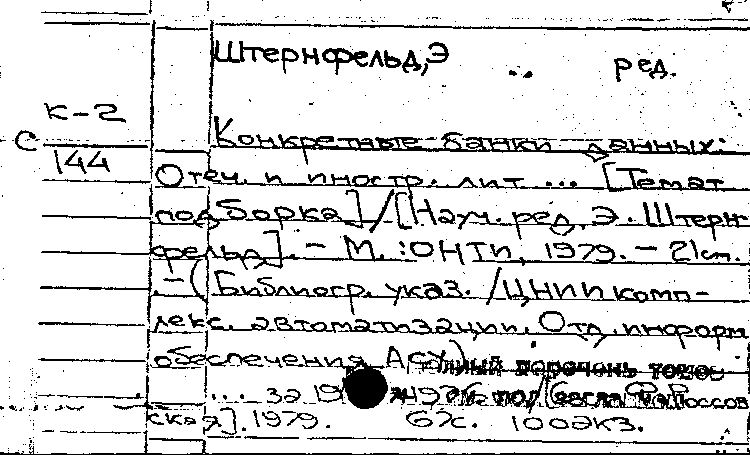 Штернфельд, Э .. ред.
К-2
С
144
Конкретные банки данных:
Отеч. и иностр. лит ... [Темат
подборка] / [Науч. ред. Э. Штерн-
фельд]. - М. : ОНТИ, 1979. - 21 см.
. - (Библиогр. указ. / ЦНИИ комп-
лекс. автоматизации. Отд. информ
обеспечения АСУ)
... за 19
ская]. 1979. Б/Ж. 100 экз.